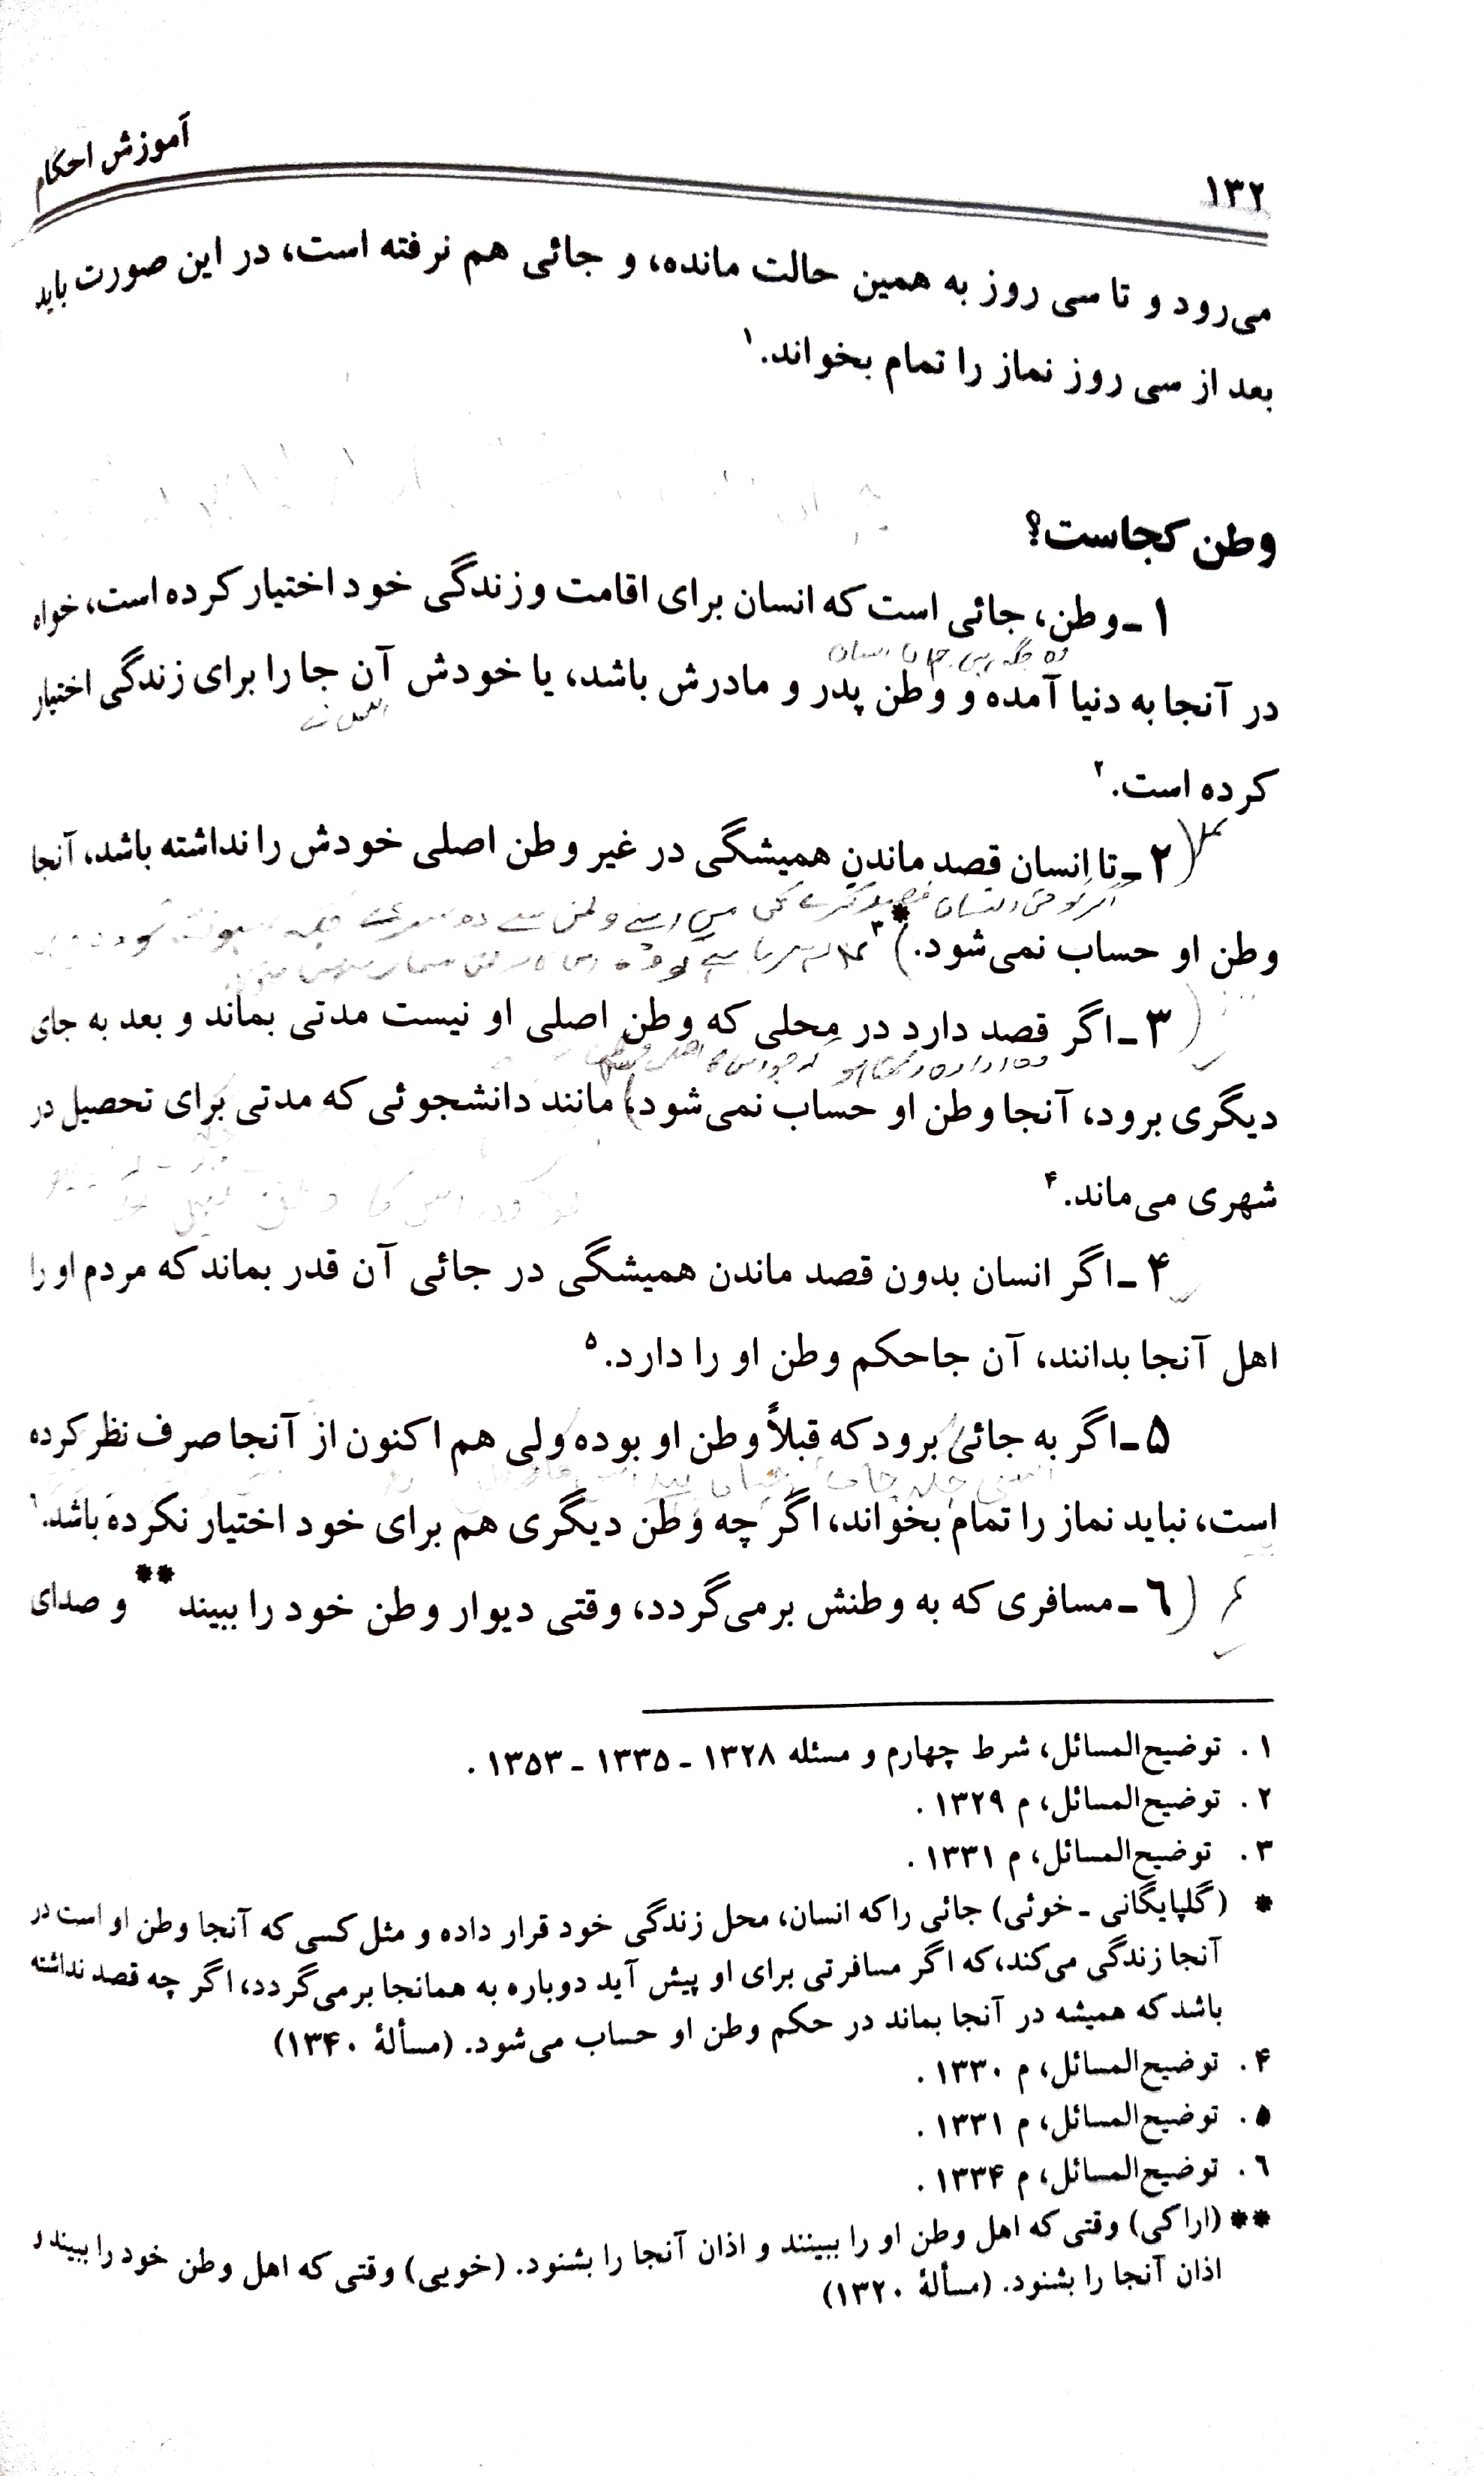 آموزش احکام
۱۳۲
می‌رود و تا سی روز به همین حالت مانده، و جائی هم نرفته است، در این صورت باید
بعد از سی روز نماز را تمام بخواند.۱
وطن کجاست؟
۱ـ وطن، جائی است که انسان برای اقامت و زندگی خود اختیار کرده است، خواه
در آنجا به دنیا آمده و وطن پدر و مادرش باشد، یا خودش آن جا را برای زندگی اختیار
کرده است.۲
۲ـ تا انسان قصد ماندنِ همیشگی در غیر وطن اصلی خودش را نداشته باشد، آنجا
وطن او حساب نمی‌شود.)۳*
(۳ـ اگر قصد دارد در محلی که وطن اصلی او نیست مدتی بماند و بعد به جای
دیگری برود، آنجا وطن او حساب نمی‌شود)؛ مانند دانشجوئی که مدتی برای تحصیل در
شهری می‌ماند.۴
۴ـ اگر انسان بدون قصد ماندن همیشگی در جائی آن قدر بماند که مردم او را
اهل آنجا بدانند، آن جا حکم وطن او را دارد.۵
۵ـ اگر به جائی برود که قبلاً وطن او بوده ولی هم اکنون از آنجا صرف نظر کرده
است، نباید نماز را تمام بخواند، اگر چه وطن دیگری هم برای خود اختیار نکرده باشد.۶
(۶ـ مسافری که به وطنش برمی‌گردد، وقتی دیوار وطن خود را ببیند** و صدای
۱. توضیح‌المسائل، شرط چهارم و مسئله ۱۳۲۸ ـ ۱۳۳۵ ـ ۱۳۵۳.
۲. توضیح‌المسائل، م ۱۳۲۹.
۳. توضیح‌المسائل، م ۱۳۳۱.
* (گلپایگانی ـ خوئی) جائی را که انسان، محل زندگی خود قرار داده و مثل کسی که آنجا وطن او است در
آنجا زندگی می‌کند، که اگر مسافرتی برای او پیش آید دوباره به همانجا برمی‌گردد، اگر چه قصد نداشته
باشد که همیشه در آنجا بماند در حکم وطن او حساب می‌شود. (مسألهٔ ۱۳۴۰)
۴. توضیح‌المسائل، م ۱۳۳۰.
۵. توضیح‌المسائل، م ۱۳۳۱.
۶. توضیح‌المسائل، م ۱۳۳۴.
** (اراکی) وقتی که اهل وطن او را ببینند و اذان آنجا را بشنود. (خویی) وقتی که اهل وطن خود را ببیند و
اذان آنجا را بشنود. (مسألهٔ ۱۳۲۰)